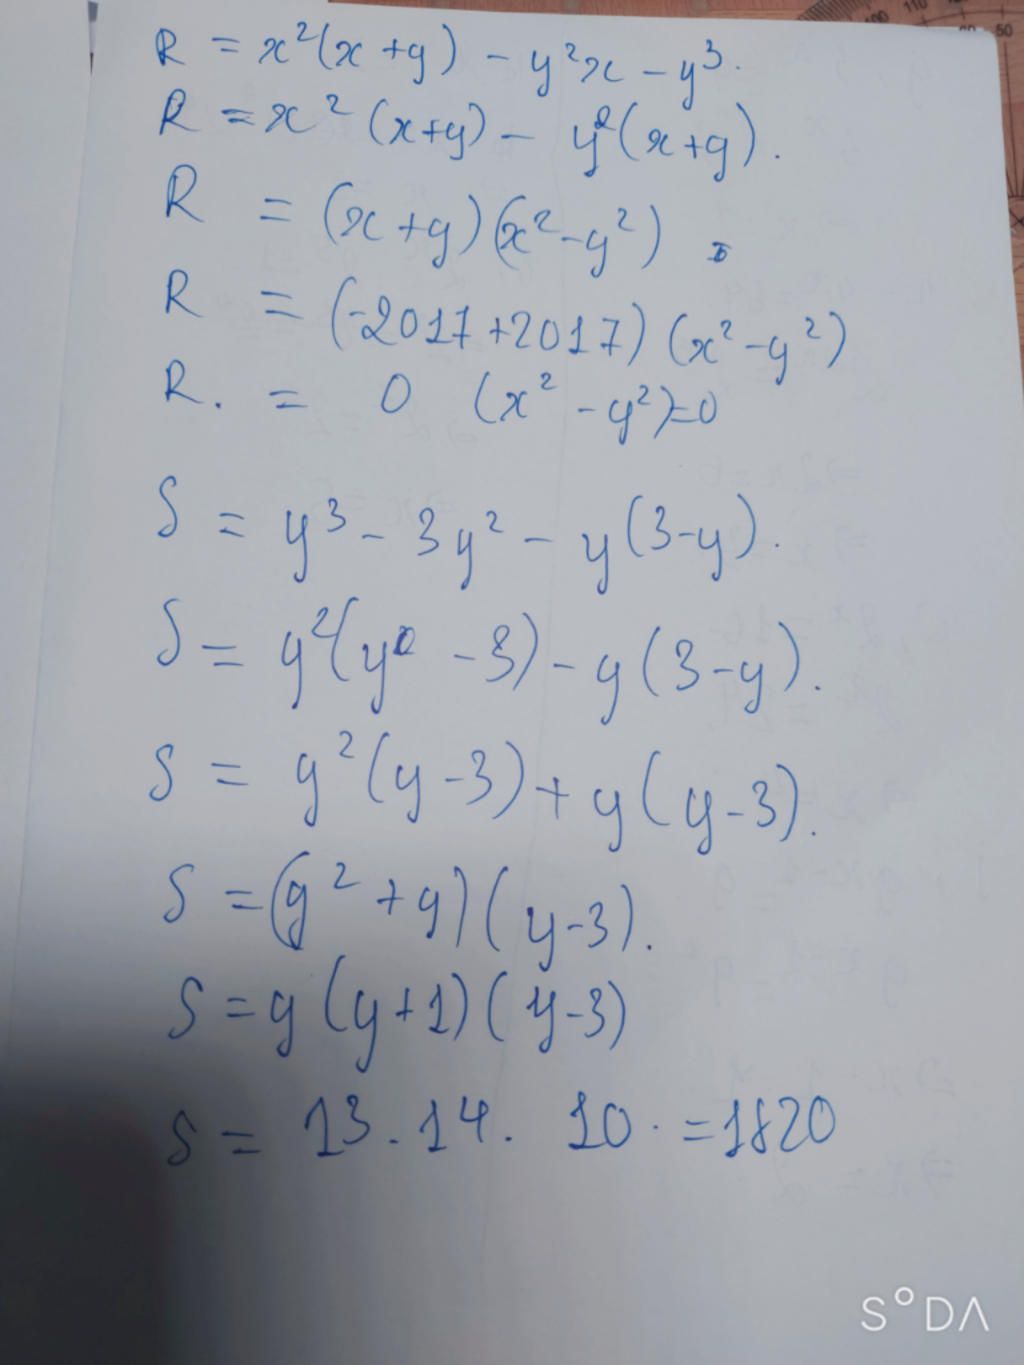 R = x²(x+y) - y²x - y³.
R = x²(x+y) - y²(x+y).
R = (x+y)(x²-y²).
R = (-2017+2017)(x²-y²)
R. = 0 (x²-y²)=0
S = y³ - 3y² - y(3-y).
S = y²(y - 3) - y(3-y).
S = y²(y-3) + y(y-3).
S = (y²+y)(y-3).
S = y(y+1)(y-3)
S = 13.14. 10. = 1820
100 110
60 50
S°DA